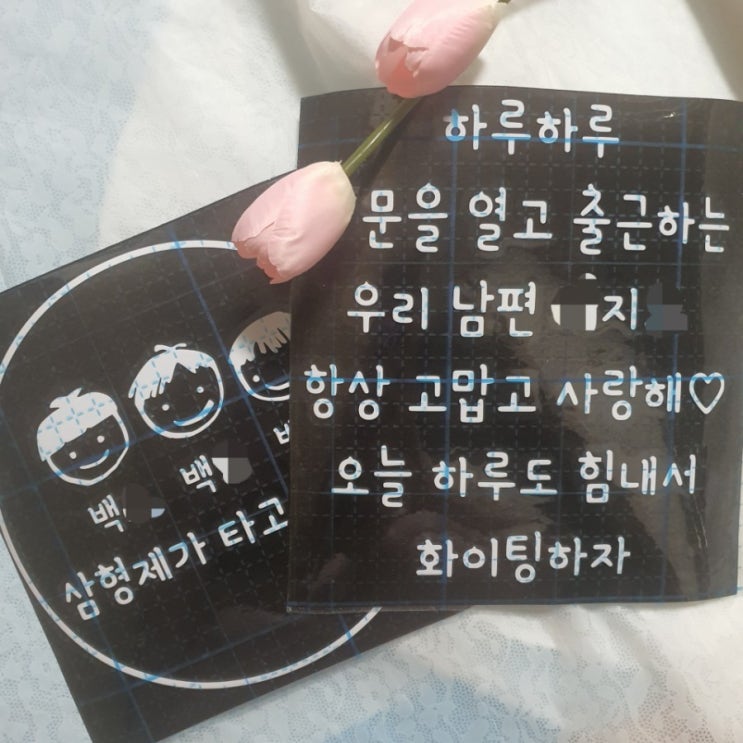 하루하루
문을 열고 출근하는
우리 남편 지
항상 고맙고 사랑해♡
오늘 하루도 힘내서
화이팅하자
백
백
삼형제가 타고